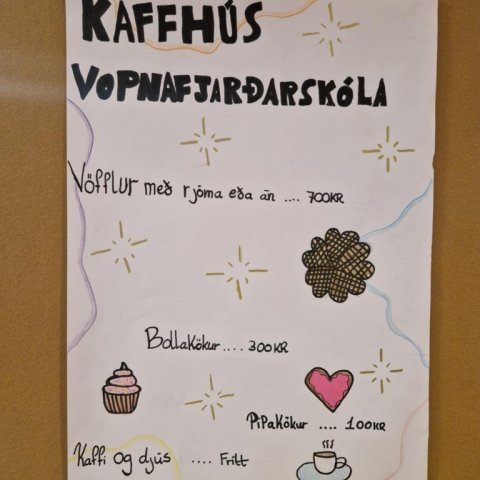 KAFFHÚS
VOPNAFJARÐARSKÓLA
Vöfflur með rjóma eða án .... 700KR
Bollakökur .... 300KR
PiPaKökur .... 100KR
Kaffi og djús .... Frítt